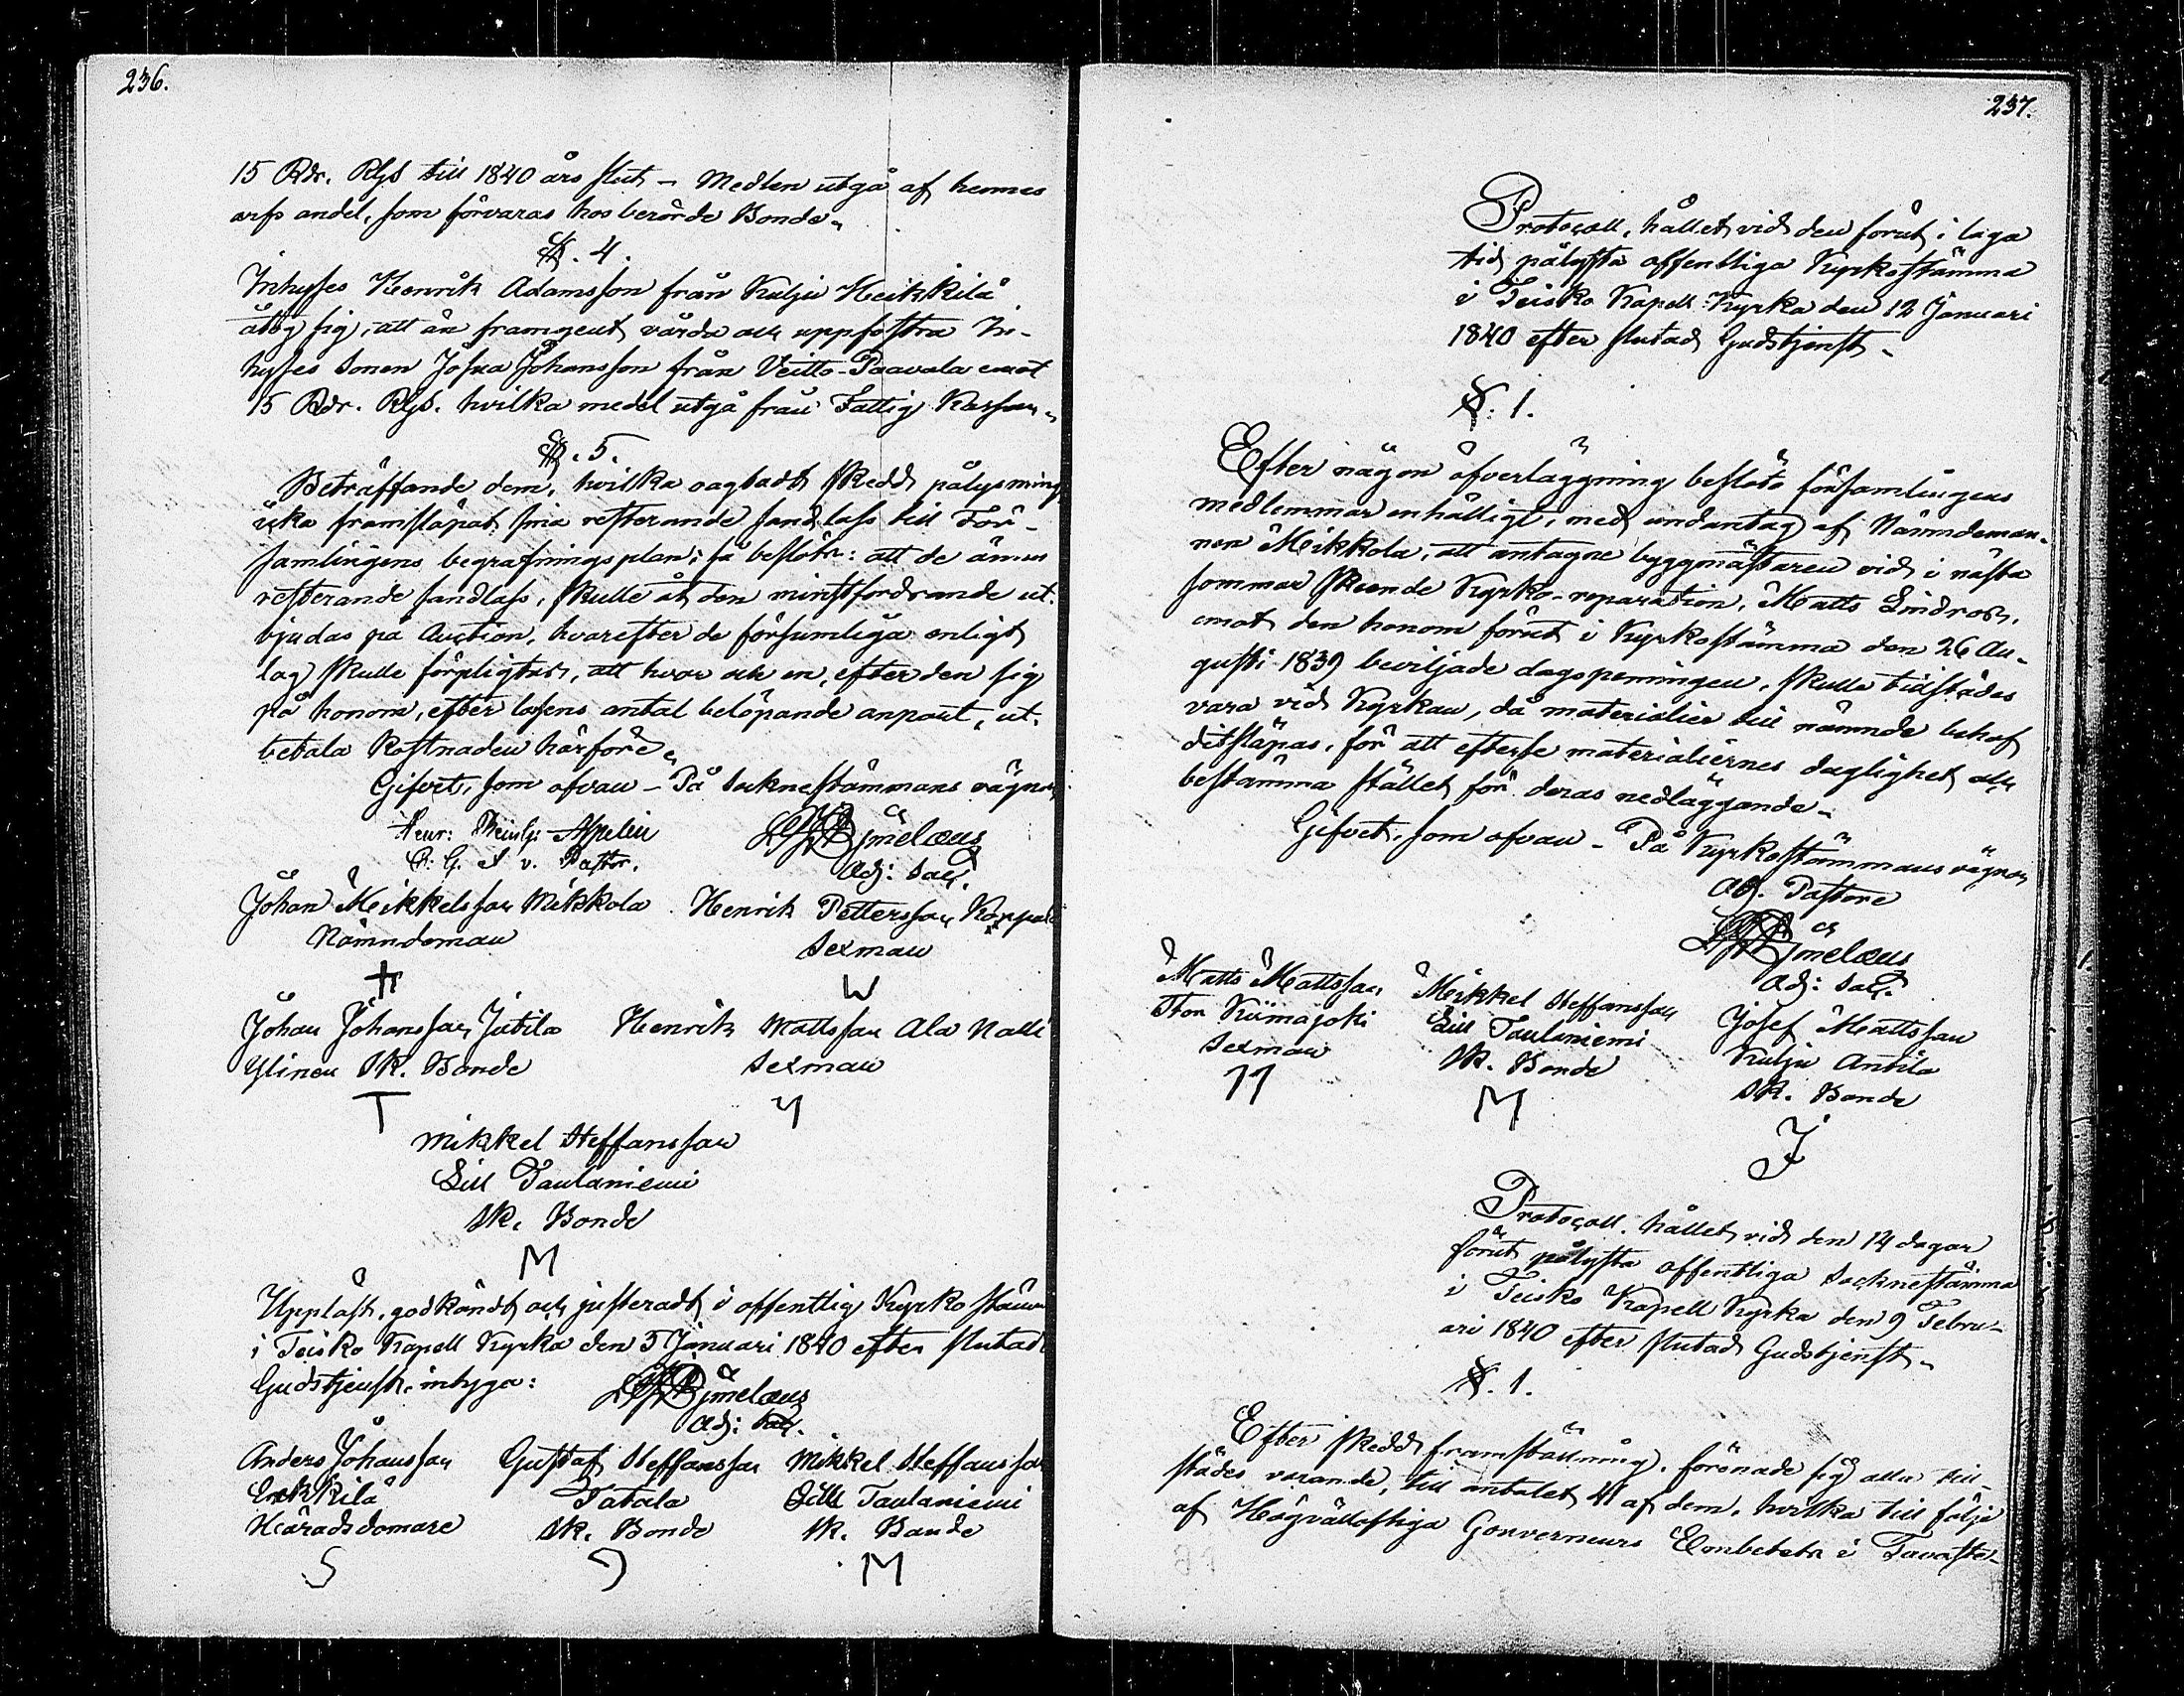 236.
15 Rdr. Rgs till 1840 års slut – Medlen utgå af hennes
arfs andel, som förvaras hos berörde Bonde.
§. 4.
Inhyses Henrik Adamsson från Kulju Heikkilä
åtog sig, att än framgent vårda och uppfostra In-
hyses sonen Josua Johansson från Veitto-Paavola emot
15 Rdr. Rgs. hvilka medel utgå från Fattig Kassan.
§. 5.
Beträffande dem, hvilka oagtadt skedd pålysning
icke framsläpat sina resterande sandlass till För-
samlingens begrafningsplan; så beslöts: att de ännu
resterande sandlass, skulle åt den minstfordrande ut-
bjudas på Auction, hvarefter de försumliga enligt
lag skulle förpligtas, att hvar och en, efter den sig
på honom, efter lassens antal belöpande anpart, ut-
betala kostnaden härföre.
Gifvet, som ofvan – På Socknestämmans vägnar
Henr: Appelin
v. Pastor.
Björnelæus
Adj: Sac.
Johan Mikkelsson Mikkola
Nämndeman
Henrik Pettersson
Sexman
W
Johan Johansson Jutila
Ylinen Sk. Bonde
T
Henrik Mattsson Ala Nalli
Sexman
Mikkel Steffansson
Lill Taulaniemi
Sk. Bonde
M
Uppläst, godkändt och justeradt i offentlig Kyrko stämma
i Teisko Kapell Kyrka den 5 Januari 1840 efter slutad
Gudstjenst, intyga:
Björnelæus
Adj: Sac.
Anders Johansson
Erkkilä
Häradsdomare
Gustaf Steffansson
Tatala
Sk. Bonde
Mikkel Steffansson
Lill Taulaniemi
Sk. Bonde
M
237.
Protocoll, hållet vid den förut i laga
tid pålysta offentliga Kyrkostämma
i Teisko Kapell-Kyrka den 12 Januari
1840 efter slutad Gudstjenst –
§. 1.
Efter någon öfverläggning beslöto församlingens
medlemmar enhälligt, med undantag af Nämndeman-
nen Mikkola, att antagne byggmästaren vid i nästa
sommar skeende Kyrko-reparation, Matts Lindroos,
emot den honom förut i Kyrkostämma den 26 Au-
gusti 1839 beviljade dagspenningen, skulle tillstädes
vara vid Kyrkan, då materialier till nämnde behof
ditsläpas, för att efterse materialiernes daglighet och
bestämma stället för deras nedläggande –
Gifvet, som ofvan – På Kyrkostämmans vägnar
Adj. Pastore
Björnelæus
Adj: Sac.
Matts Mattsson
Stor Kiimajoki
Sexman
Mikkel Steffansson
Lill Taulaniemi
Sk. Bonde
M
Josef Mattsson
Kulju Anttila
Sk. Bonde
J
Protocoll, hållet vid den 14 dagar
förut pålysta offentliga Socknestämma
i Teisko Kapell Kyrka den 9 Febru-
ari 1840 efter slutad Gudstjenst –
§. 1.
Efter skedd framställning, förenade sig alla till-
städes varande, till antalet 41 af dem, hvilka till följe
af Högvällofliga Gouverneurs Embetets i Tavaste-